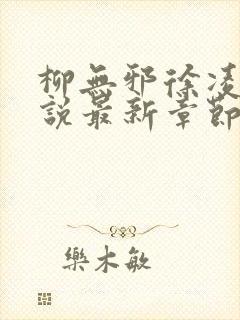 柳無邪徐凌
說最新章節
樂木敏